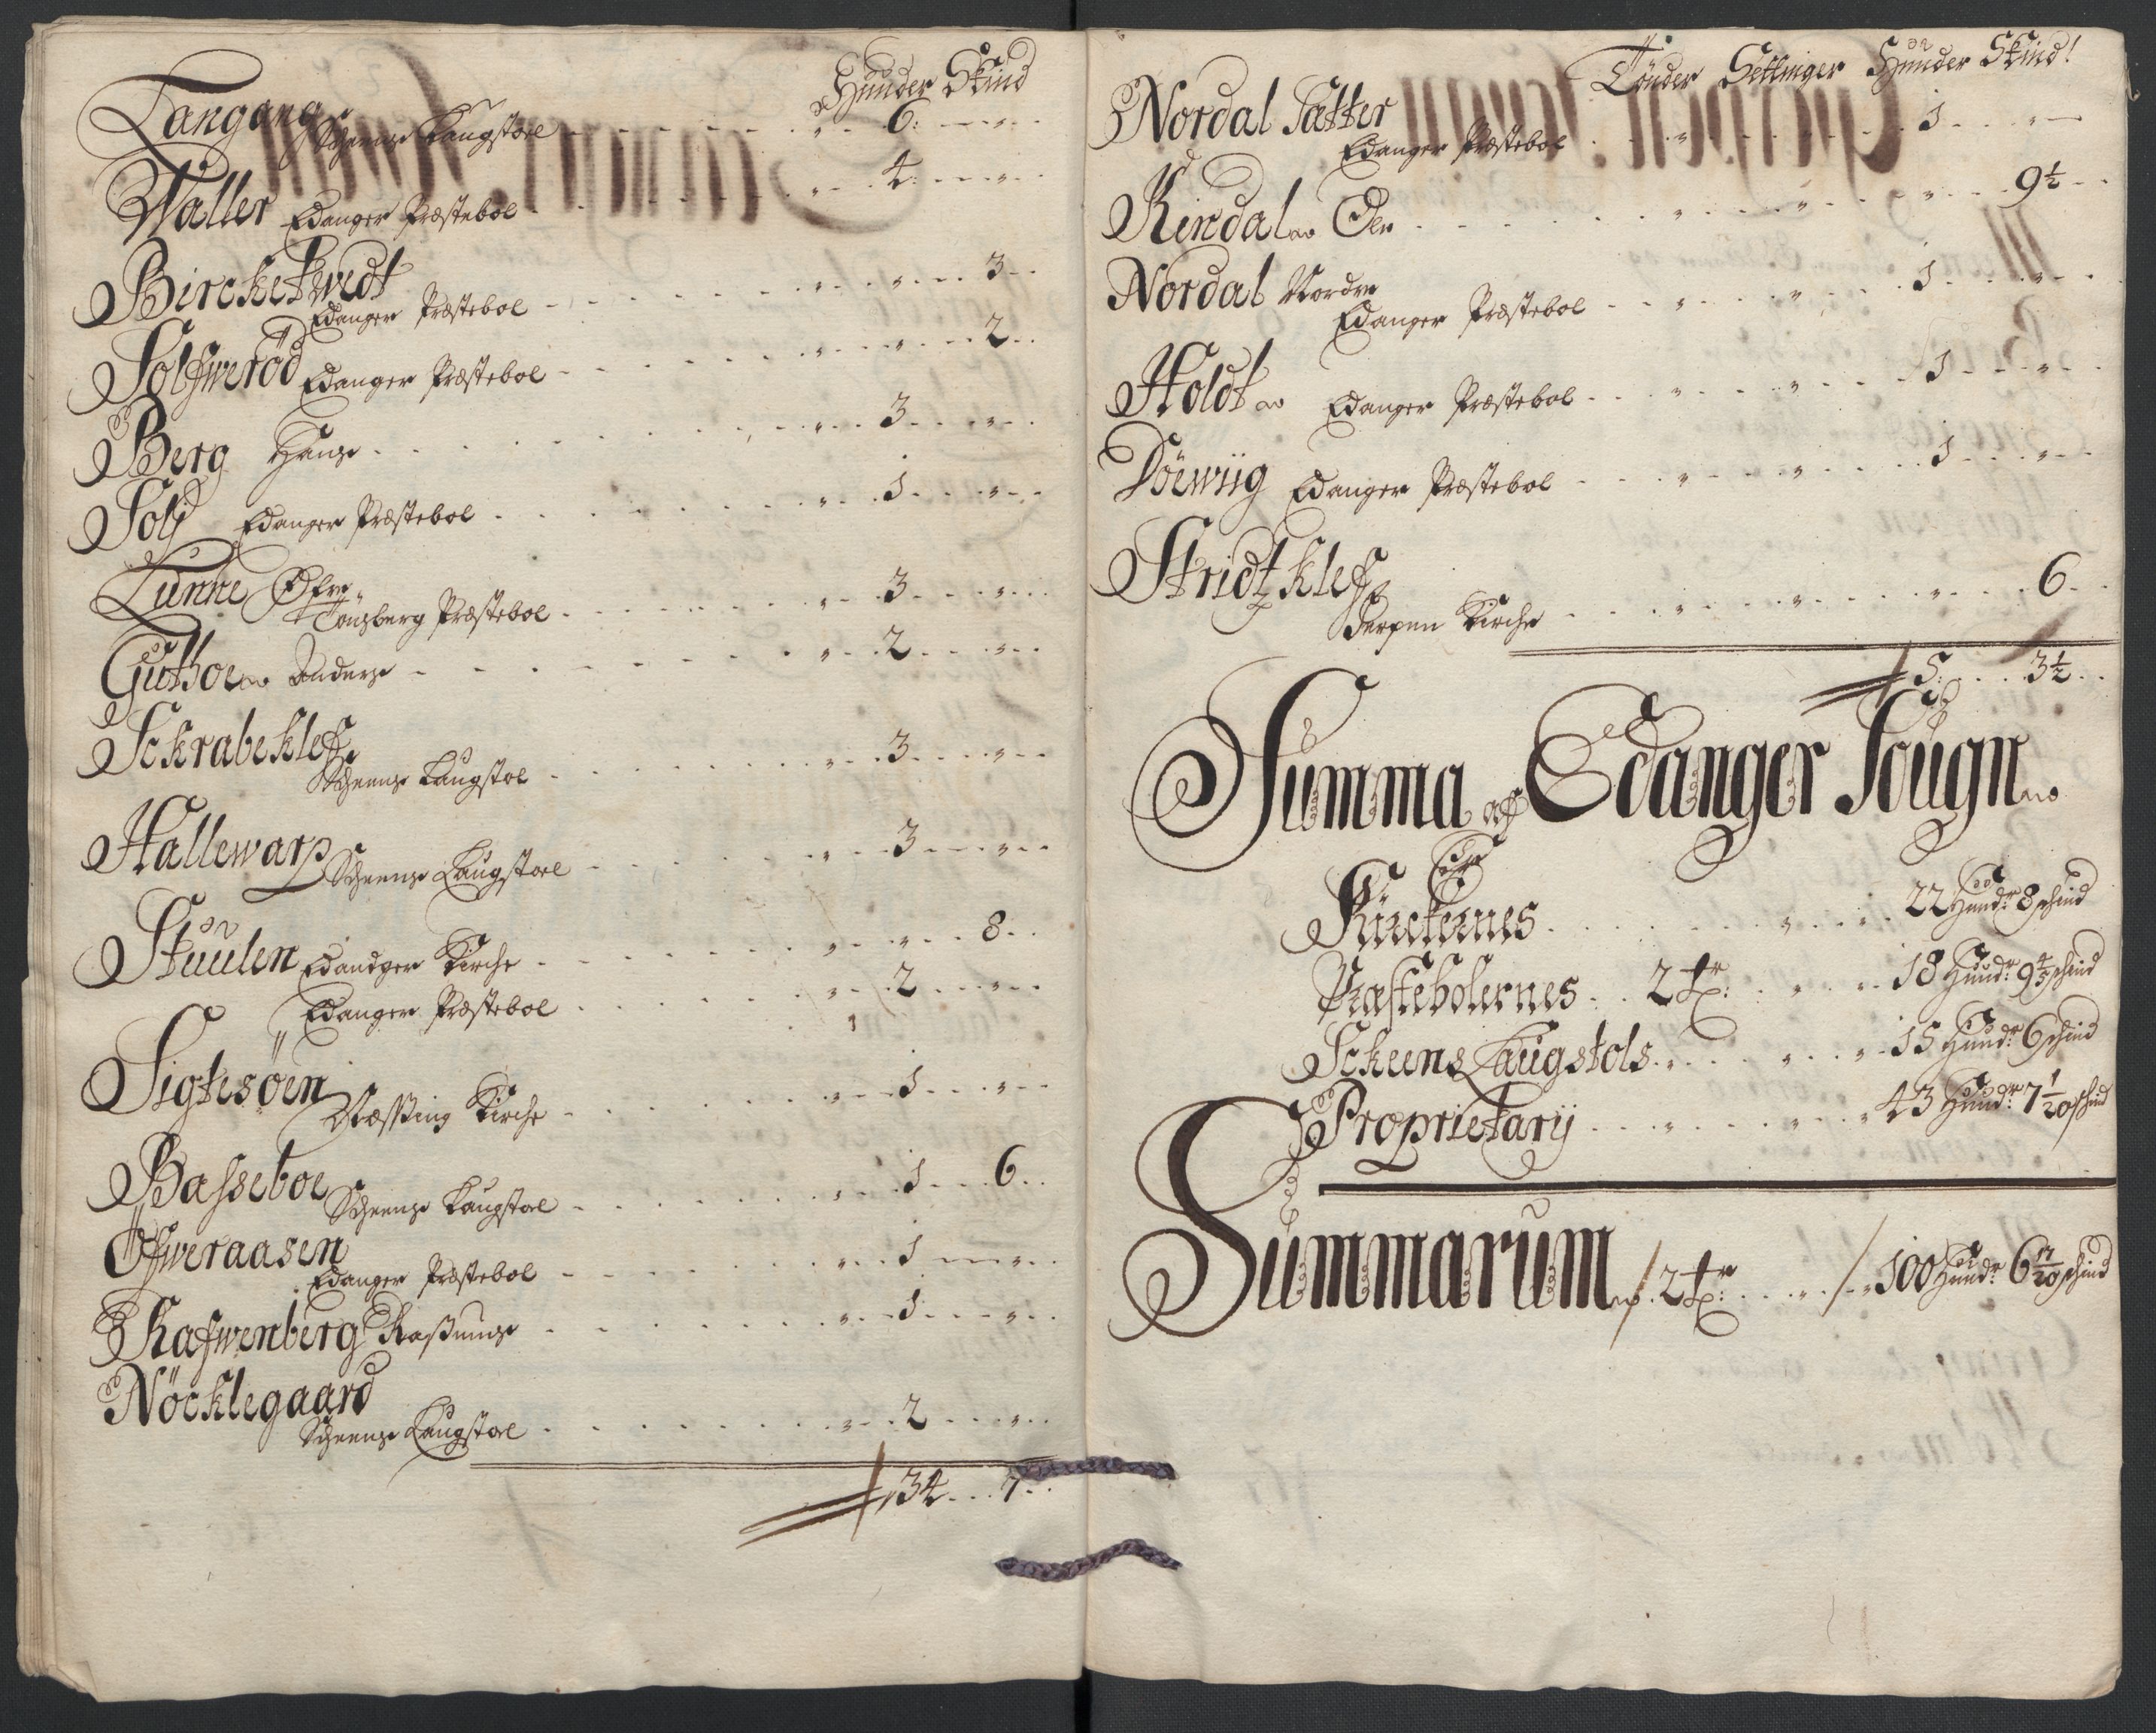 Hünder Skind
Langang
Scheens Laugstoel - - - 6: - - -
Waller Edanger Præstebol - - - 4: - - -
Birckekwedt
Edanger Præstebol - - - 3 - -
Solfweröd Edanger Præstebol - - - 2 - -
Berg Hanse - - - 3 - - -
Soly Edanger Præstebol - - - 1 - - -
Lunne Øfre
Tönsberg Præstebol - - - 3 - - -
Guthoe Anders - - - 2 - - -
Sckrabeklef
Scheens Laugstol - - - 3 - - -
Hallewarp Scheens Laugstoel - - - 3 - - -
Stuulen Edandger Kirche - - - 8 - -
Edanger Præstebol - - - 2 - - -
Sigtesöen
Næssting Kirche - - - 1 - - -
Basseboe Scheens Laugstoel - - - 1 - - - 6 - -
Öfweraasen
Edanger Præstebol - - - 1 - - -
Rafwenberg - - - 1 - - -
Nöcklegaard
Scheens Laugstoel - - - 2 - - -
34 - - - 7 - -
Tönder Settinger Hünder Skind!
Nordal Sætter
Edanger Præstebol - - - 1 - - -
Rindal Øen - - - 9½ - -
Nordal Nordre
Edanger Præstebol - - - 1 - - -
Holdt Edanger Præstebol - - - 1 - - -
Döewiig Edanger Præstebol - - - 1 - - -
Stridtzklef
Kirche - - - 6 - -
5: - - - 3½ - -
Summa aff Edanger Sougn
Er
Kirckernes - - - 22 Hundr: 8 schind
Præstebolernes - - 2 tr: - - - 18 Hundr: 9 4/5 schind
Sckeens Laugstols - - - 15 Hundr: 6 schind
Proprietarij - - - 43 Hundr: 7 1/20 schind
Summarum 2 tr: - - - 100 Hundr: 6 17/20 schind